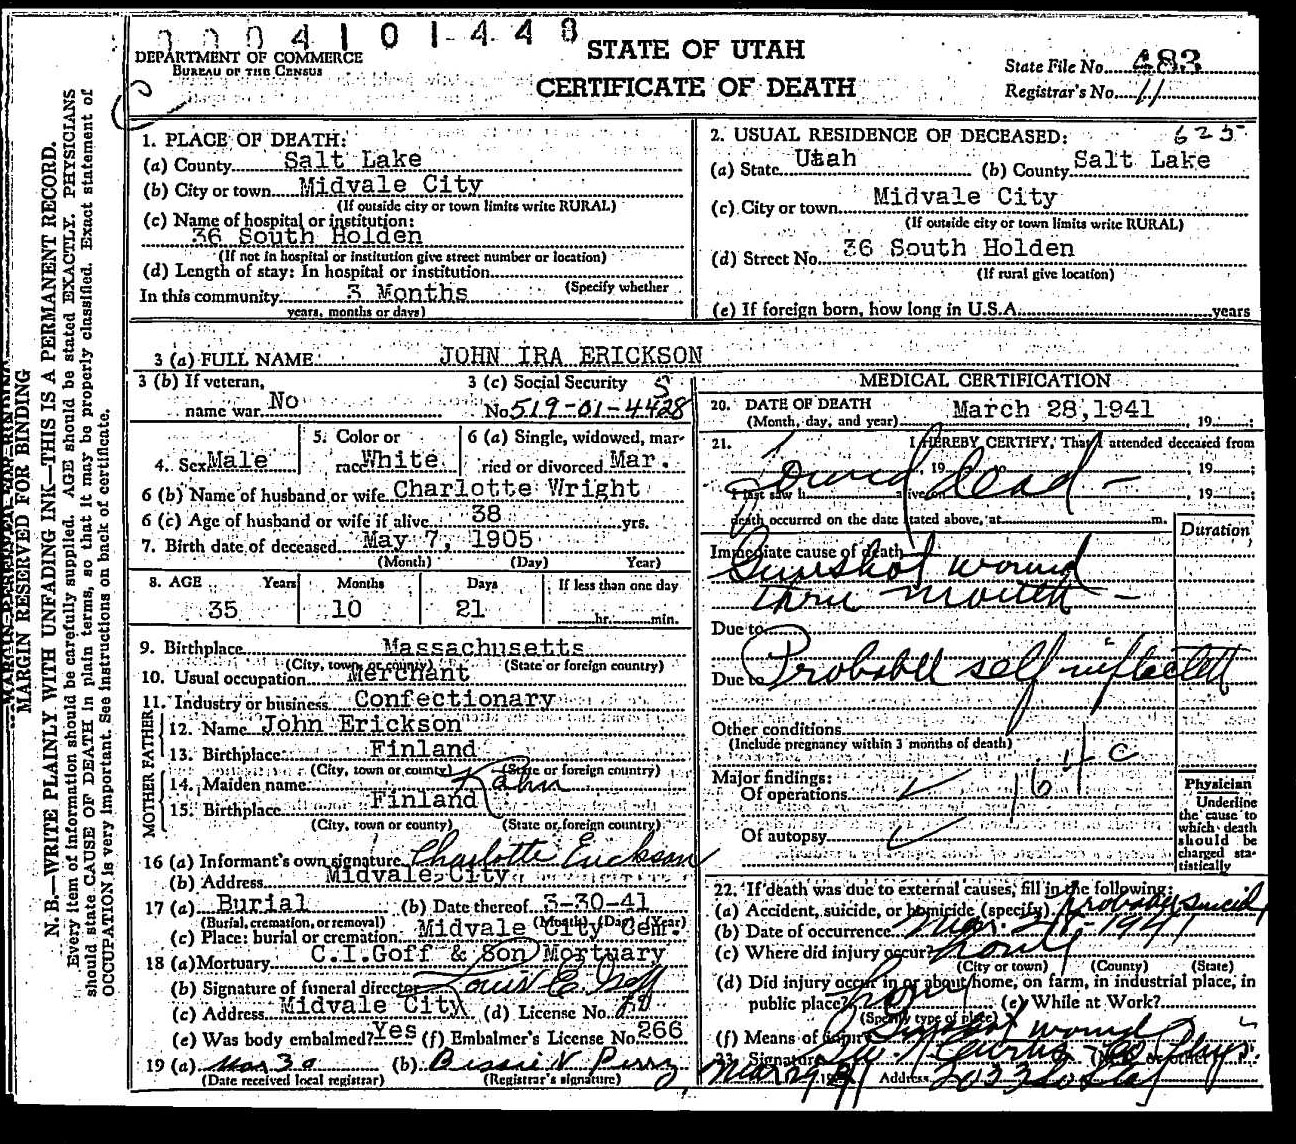 0004101448
DEPARTMENT OF COMMERCE
BUREAU OF THE CENSUS
STATE OF UTAH
CERTIFICATE OF DEATH
State File No. 483
Registrar's No. 11
MARGIN RESERVED FOR BINDING
N. B.—WRITE PLAINLY WITH UNFADING INK—THIS IS A PERMANENT RECORD.
Every item of information should be carefully supplied. AGE should be stated EXACTLY. PHYSICIANS
should state CAUSE OF DEATH in plain terms, so that it may be properly classified. Exact statement of
OCCUPATION is very important. See instructions on back of certificate.
1. PLACE OF DEATH:
(a) County Salt Lake
(b) City or town Midvale City
(If outside city or town limits write RURAL)
(c) Name of hospital or institution:
36 South Holden
(If not in hospital or institution give street number or location)
(d) Length of stay: In hospital or institution
(Specify whether
In this community 3 Months
years, months or days)
2. USUAL RESIDENCE OF DECEASED: 625
(a) State Utah (b) County Salt Lake
(c) City or town Midvale City
(If outside city or town limits write RURAL)
(d) Street No. 36 South Holden
(If rural give location)
(e) If foreign born, how long in U.S.A. years
3 (a) FULL NAME JOHN IRA ERICKSON
3 (b) If veteran,
name war No
3 (c) Social Security
No 519-01-4428
4. Sex Male
5. Color or
race White
6 (a) Single, widowed, mar-
ried or divorced Mar.
6 (b) Name of husband or wife Charlotte Wright
6 (c) Age of husband or wife if alive 38 yrs.
7. Birth date of deceased May 7, 1905
(Month) (Day) Year)
8. AGE Years Months Days If less than one day
35 10 21 hr. min.
9. Birthplace Massachusetts
(City, town or county) (State or foreign country)
10. Usual occupation Merchant
11. Industry or business Confectionary
FATHER
12. Name John Erickson
13. Birthplace Finland
(City, town or county) (State or foreign country)
MOTHER
14. Maiden name
15. Birthplace Finland
(City, town or county) (State or foreign country)
16 (a) Informant's own signature Charlotte Erickson
(b) Address Midvale City
17 (a) Burial (b) Date thereof 3-30-41
(Burial, cremation, or removal) (Month) (Day) (Year)
(c) Place: burial or cremation Midvale City Cem.
18 (a) Mortuary C.I.Goff & Son Mortuary
(b) Signature of funeral director Louis C. Goff
(c) Address Midvale City (d) License No.
(e) Was body embalmed? Yes (f) Embalmer's License No. 266
19 (a) Mar 30 (b) Bessie V Perry
(Date received local registrar) (Registrar's signature)
MEDICAL CERTIFICATION
20. DATE OF DEATH March 28,1941 19
(Month, day, and year)
21. I HEREBY CERTIFY, That I attended deceased from
19 19
Found dead
I last saw h alive on 19
death occurred on the date stated above, at m.
Duration
Immediate cause of death
Gunshot wound
thru mouth
Due to
Due to Probable self inflicted
Other conditions
(Include pregnancy within 3 months of death)
Major findings:
Of operations
Of autopsy
Physician
Underline
the cause to
which death
should be
charged sta-
tistically
22. If death was due to external causes, fill in the following:
(a) Accident, suicide, or homicide (specify) probably suicide
(b) Date of occurrence 1941
(c) Where did injury occur? home
(City or town) (County) (State)
(d) Did injury occur in or about home, on farm, in industrial place, in
public place? home (e) While at Work?
(Specify type of place)
(f) Means of injury Gunshot wound
23. Signature
Mar 29 Address